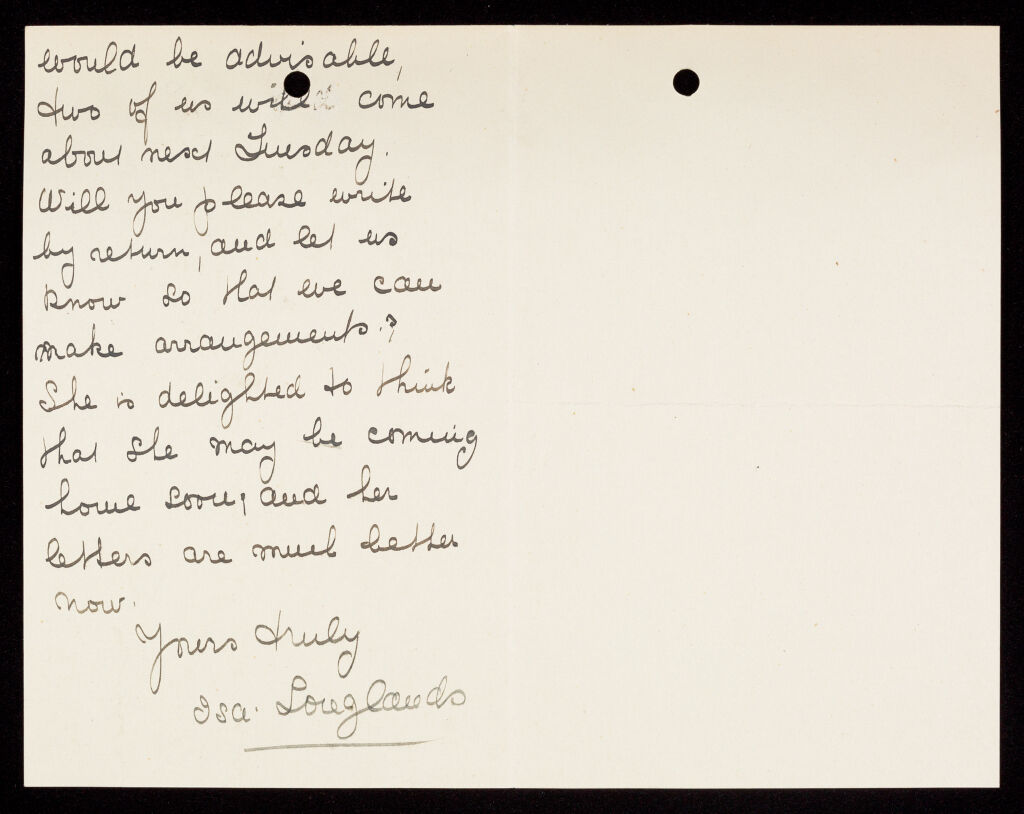 would be advisable,
two of us will come
about next Tuesday.
Will you please write
by return, and let us
know so that we can
make arrangements.?
She is delighted to think
that she may be coming
home soon; and her
letters are much better
now.
Yours truly
Isa. Longlands